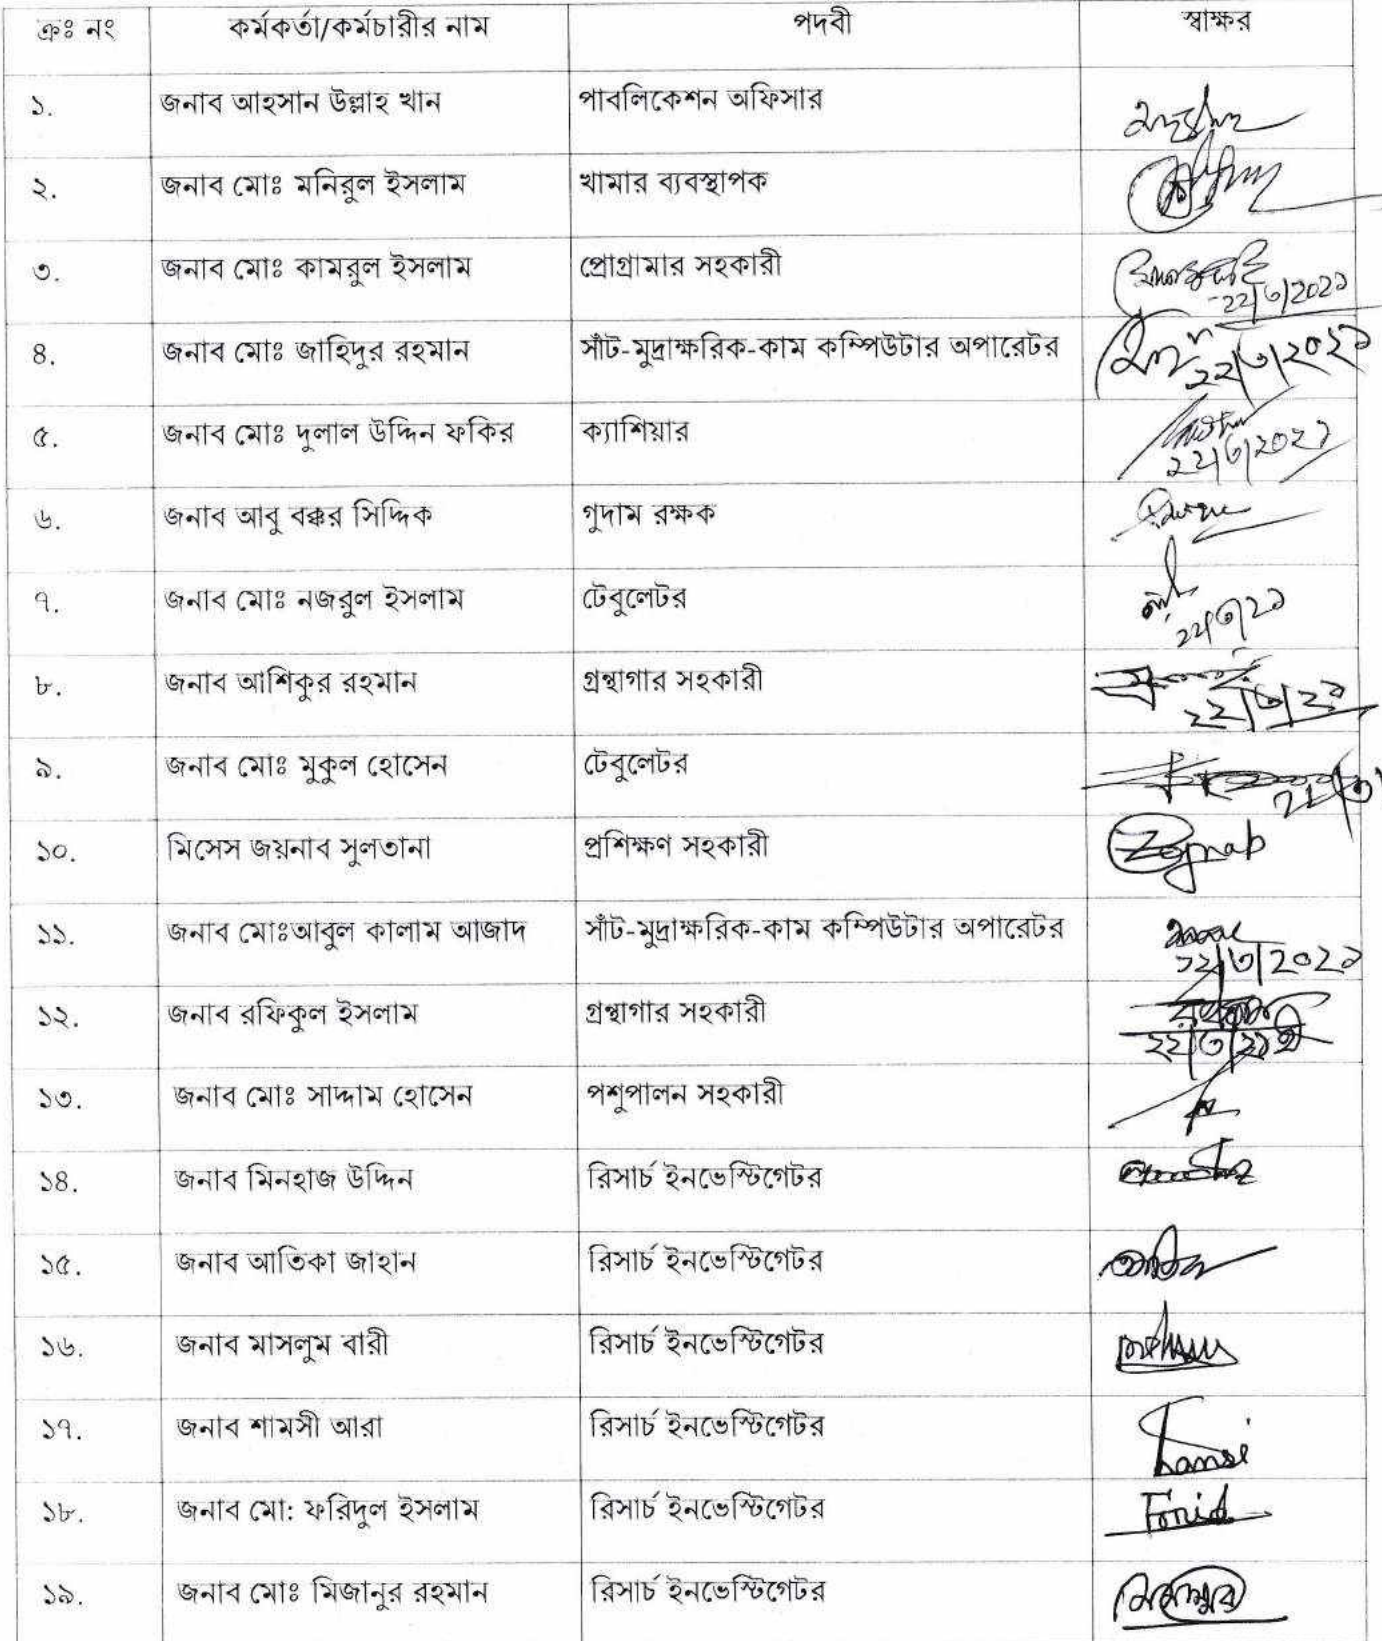 ক্রঃ নং কর্মকর্তা/কর্মচারীর নাম পদবী স্বাক্ষর
১. জনাব আহসান উল্লাহ খান পাবলিকেশন অফিসার
২. জনাব মোঃ মনিরুল ইসলাম খামার ব্যবস্থাপক
৩. জনাব মোঃ কামরুল ইসলাম প্রোগ্রামার সহকারী
২২/৩/২০২১
৪. জনাব মোঃ জাহিদুর রহমান সাঁট-মুদ্রাক্ষরিক-কাম কম্পিউটার অপারেটর
২২/৩/২০২১
৫. জনাব মোঃ দুলাল উদ্দিন ফকির ক্যাশিয়ার
২২/৩/২০২১
৬. জনাব আবু বক্কর সিদ্দিক গুদাম রক্ষক
৭. জনাব মোঃ নজরুল ইসলাম টেবুলেটর
২২/৩/২১
৮. জনাব আশিকুর রহমান গ্রন্থাগার সহকারী
২২/৩/২১
৯. জনাব মোঃ মুকুল হোসেন টেবুলেটর
১০. মিসেস জয়নাব সুলতানা প্রশিক্ষণ সহকারী Zaynab
১১. জনাব মোঃআবুল কালাম আজাদ সাঁট-মুদ্রাক্ষরিক-কাম কম্পিউটার অপারেটর
২২/৩/২০২১
১২. জনাব রফিকুল ইসলাম গ্রন্থাগার সহকারী
২২/৩/২১
১৩. জনাব মোঃ সাদ্দাম হোসেন পশুপালন সহকারী
১৪. জনাব মিনহাজ উদ্দিন রিসার্চ ইনভেস্টিগেটর
১৫. জনাব আতিকা জাহান রিসার্চ ইনভেস্টিগেটর
১৬. জনাব মাসলুম বারী রিসার্চ ইনভেস্টিগেটর
১৭. জনাব শামসী আরা রিসার্চ ইনভেস্টিগেটর
১৮. জনাব মো: ফরিদুল ইসলাম রিসার্চ ইনভেস্টিগেটর Farid
১৯. জনাব মোঃ মিজানুর রহমান রিসার্চ ইনভেস্টিগেটর